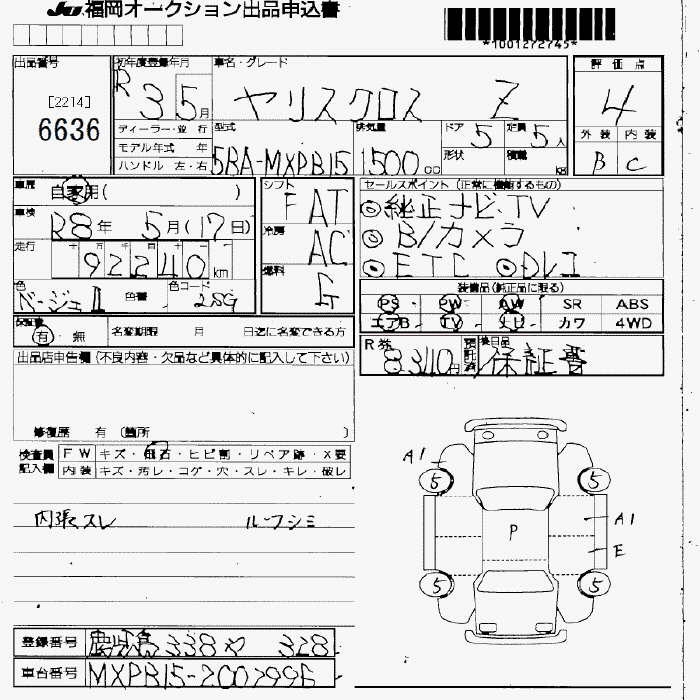 福岡オークション出品申込書
*1001272745*
出品番号
[2214]
6636
初年度登録年月
R 3 5月
車名・グレード
ヤリスクロス Z
評価点
4
外装 内装
B C
ディーラー・並行
モデル年式 年
ハンドル 左・右
型式
5BA-MXPB15
排気量
1500cc
ドア 5
定員 5人
形状
積載 kg
車歴
自家用( )
車検
R8年 5月(17日)
走行
92240km
色
ベージュII
色番
色コード
シフト
F AT
冷房
AC
燃料
G
セールスポイント(正常に機能するもの)
◎純正ナビ TV
◎B/カメラ
◎ETC ◎Dレコ
装備品(純正品に限る)
PS PW AW SR ABS
エアB TV ナビ カワ 4WD
保証書
有・無
名変期限 月 日迄に名変できる方
R券
預託済
後日品
保証書
出品店申告欄(不良内容・欠品など具体的に記入して下さい)
修復歴 有(箇所 )
検査員記入欄
FW キズ・飛石・ヒビ割・リペア跡・X要
内装 キズ・汚レ・コゲ・穴・スレ・キレ・破レ
内張スレ ルーフシミ
A1
5 5
P
A1
E
5 5
登録番号 鹿児島 338 や 328
車台番号 MXPB15-2007996